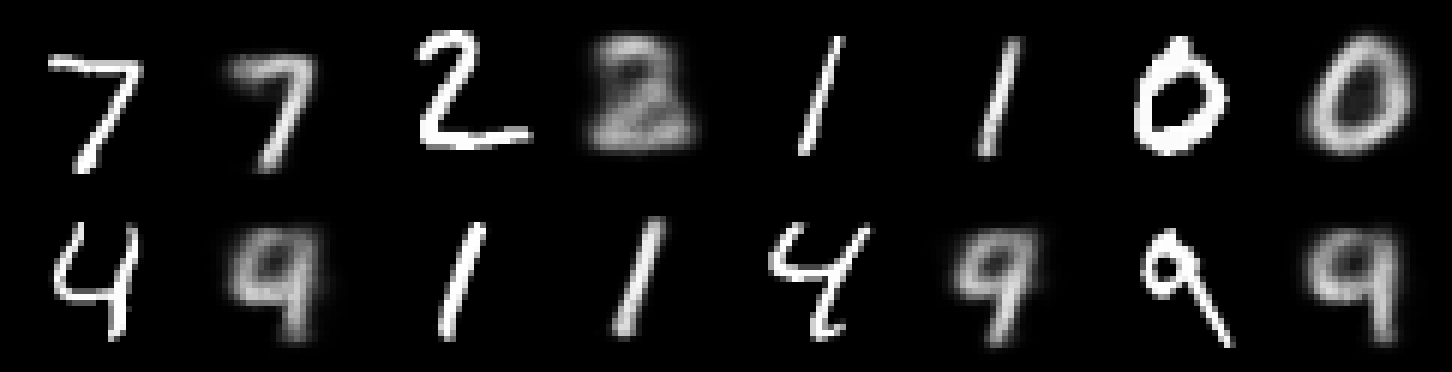 7 7 2 2 1 1 0 0
4 9 1 1 4 9 9 9